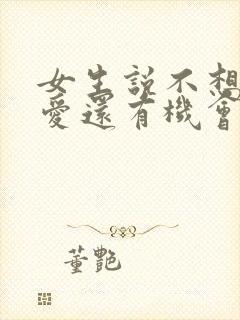 女生説不想
愛還有機會
董艷